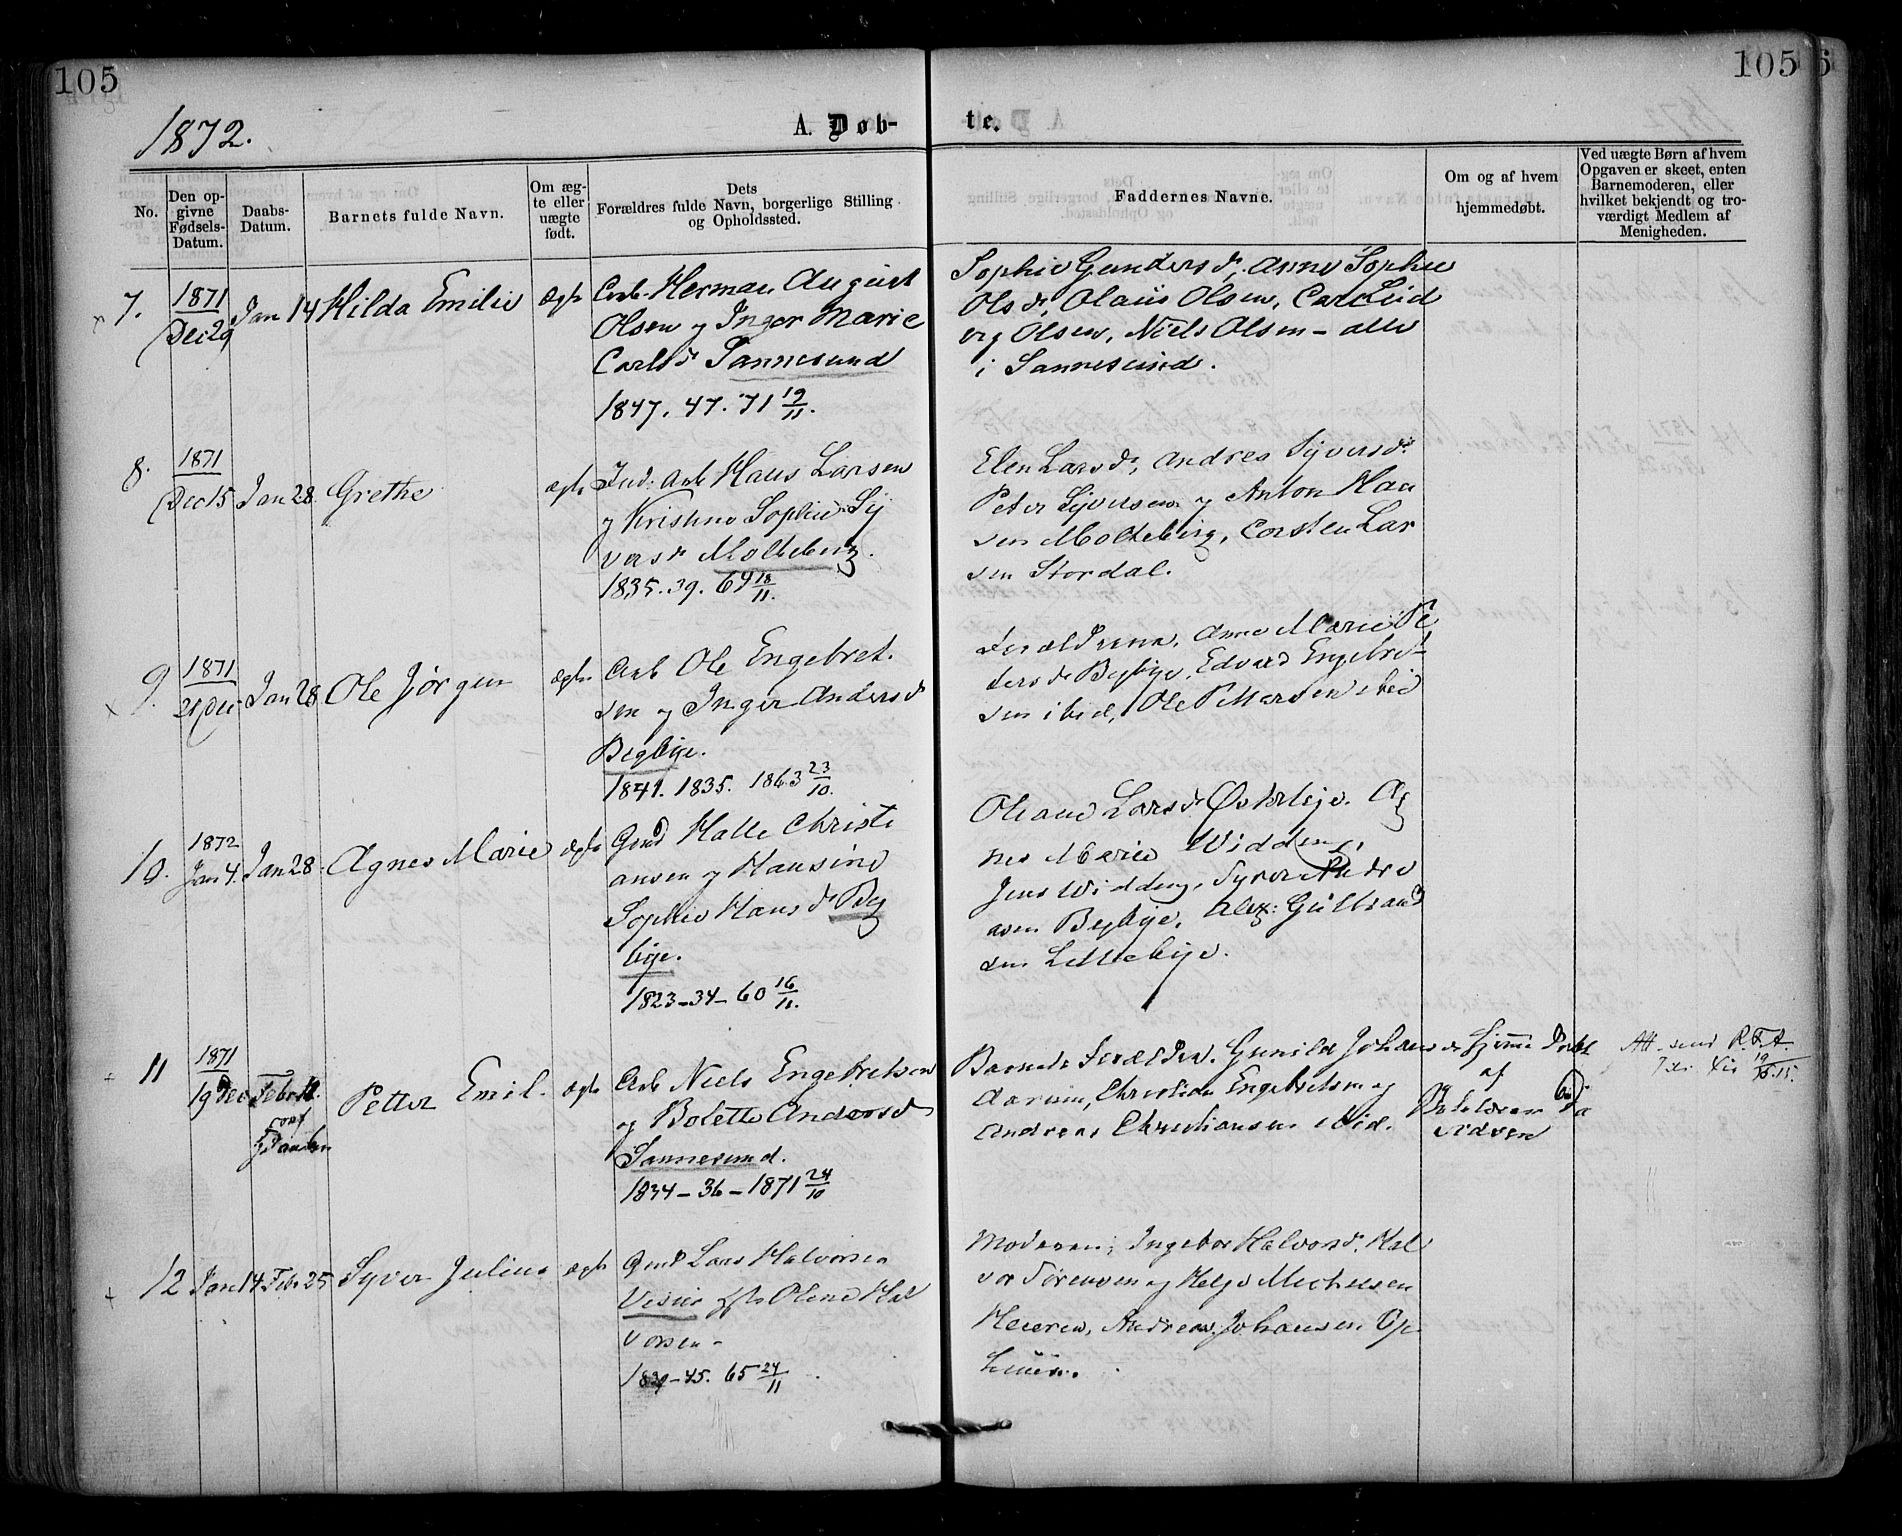 105
105
1872.
A. Døb-
te.
No.
Den op-
givne
Fødsels-
Datum.
Daabs-
Datum.
Barnets fulde Navn.
Om æg-
te eller
uægte
født.
Dets
Forældres fulde Navn, borgerlige Stilling
og Opholdssted.
Faddernes Navne.
Om og af hvem
hjemmedøbt.
Ved uægte Børn af hvem
Opgaven er skeet, enten
Barnemoderen, eller
hvilket bekjendt og tro-
værdigt Medlem af
Menigheden.
7.
1871
Dec 29
Jan 14
Hilda Emilie
ægte
Arb. Herman August
Olsen og Inger Marie
Carlsd Sannesund
1847. 47. 71 19/11.
Sophie Gundersd, Anne Sophie
Olsd, Olaus Olsen, Carl Lud
vig Olsen, Niels Olsen – alle
i Sannesund.
8.
1871
Dec 15
Jan 28
Grethe
ægte
Ind. Arb Hans Larsen
og Kristine Sophie Sy
versd Molteberg.
1835. 39. 69 18/11.
Elen Larsd, Andrea Syversd.
Peter Syversen og Anton Han
sen Molteberg, Carsten Lar
sen Stordal.
9.
1871
21 Dec
Jan 28
Ole Jørgen
ægte
Arb Ole Engebret
sen og Inger Andersd
Begbye.
1841. 1835. 1863 23/10.
Forældrene, Anne Marie Pe
dersd Begbye, Edvard Engebret
sen ibid, Ole Pettersen ibid
10.
1872
Jan 4.
Jan 28.
Agnes Marie
ægte
Gmd Halle Christi
ansen og Hansine
Sophie Hansd Beg
bye.
1823 – 34 – 60 16/11.
Oleane Larsd Østebye. Ag
nes Marie Widding,
Jens Widding, Syver Andre
asen Begbye, Alex: Gulbrand
sen Lillebye.
11
1871
19 Dec
Petter Emil.
ægte
Arb Niels Engebretsen
og Bolette Andersd
Sannesund.
1834 – 36 – 1871 24/10
Barnets Forældre. Gunild Johansd
Aarum, Christian Engebretsen og
Andreas Christiansen ibid.
Hjemmedøbt
af
12
Jan 14
Febr 25
Syver Julius
ægte
Gmd Lars Halvorsen
Visur Olene Hal
vorsen –
45. 65 24/11
Moderen, Ingebor Halvorsd. Hal
vor Sørensen og Helge Michelsen
Heieren, Andreas Johansen Op